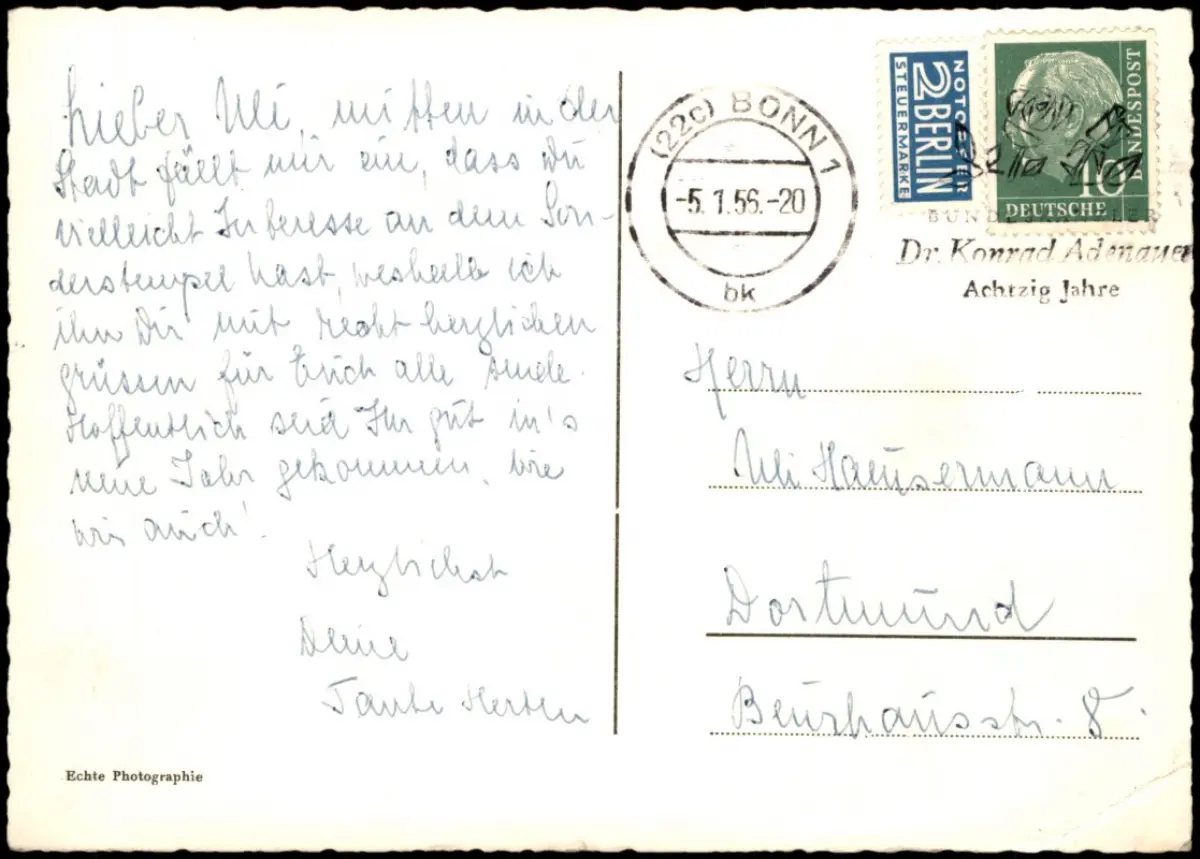 Lieber Uli, mitten in der
Stadt fällt mir ein, dass Du
vielleicht Interesse an dem Son-
derstempel hast, weshalb ich
ihn Dir mit recht herzlichen
grüssen für Euch alle sende.
Hoffentlich seid Ihr gut in's
neue Jahr gekommen, wie
wir auch!
Herzlichst
Deine
Tante
Echte Photographie
(22c) BONN 1
-5.1.56.-20
bk
NOTOPFER
2 BERLIN
STEUERMARKE
DEUTSCHE
BUNDESPOST
10
BUNDESKANZLER
Dr. Konrad Adenauer
Achtzig Jahre
Herrn
Uli Haeusermann
Dortmund
Beurhausstr. 8.